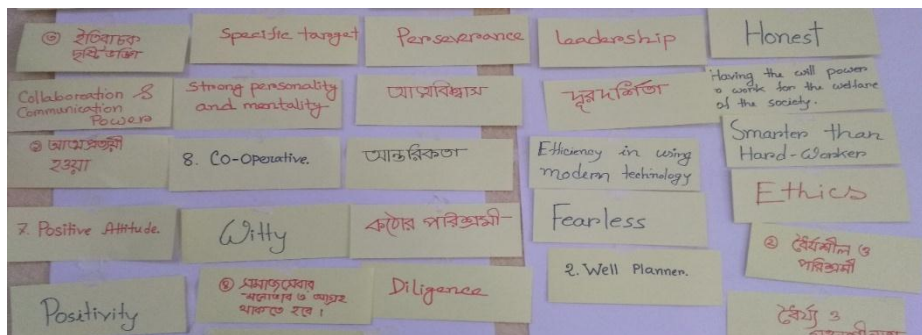 ৩ ইতিবাচক
দৃষ্টিভঙ্গি
Specific target
Perseverance
Leadership
Honest
Collaboration &
Communication
Powers
Strong personality
and mentality
আত্মবিশ্বাস
দূরদর্শিতা
Having the will power
to work for the welfare
of the society.
২ আত্মপ্রত্যয়ী
হওয়া
8. Co-operative.
আন্তরিকতা
Efficiency in using
modern technology
Smarter than
Hard-Worker
7. Positive Attitude.
Witty
কঠোর পরিশ্রমী
Fearless
Ethics
Positivity
৪ সমাজসেবার
মনোভাব ও আগ্রহ
থাকতে হবে।
Diligence
2. Well Planner.
২ ধৈর্যশীল ও
পরিশ্রমী
ধৈর্য্য ও